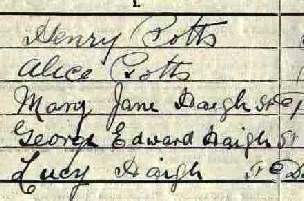 Henry Potts
Alice Potts
Mary Jane Haigh Step
George Edward Haigh St
Lucy Haigh Step Da